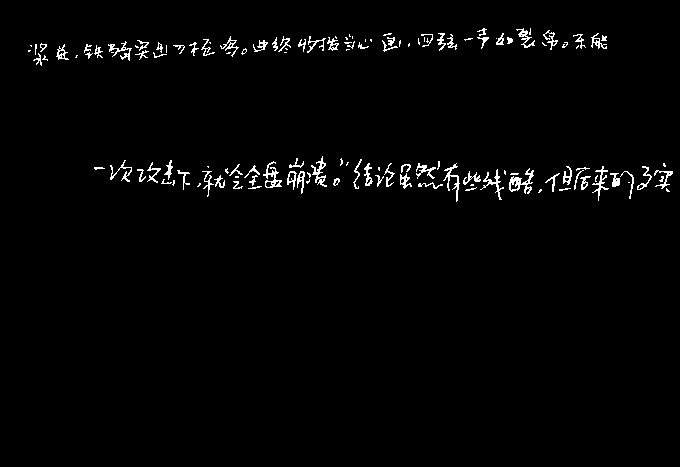 浆迸,铁骑突出刀枪鸣。曲终收拨当心画,四弦一声如裂帛。东船
一次攻击下,就会全盘崩溃。”结论虽然有些残酷,但后来的事实